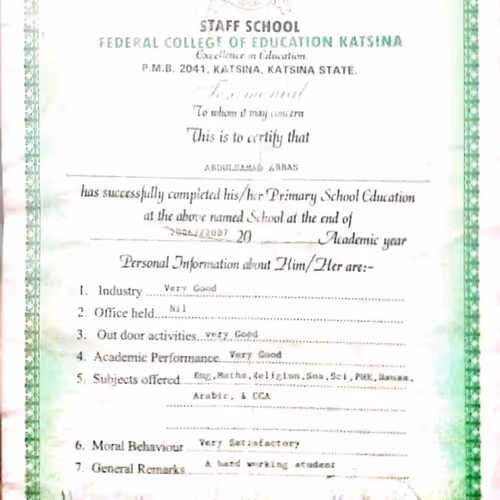 STAFF SCHOOL
FEDERAL COLLEGE OF EDUCATION KATSINA
Excellence in Education
P.M.B. 2041, KATSINA, KATSINA STATE.
Testimonial
To whom it may concern
This is to certify that
ABDULSAMAD ABBAS
has successfully completed his/her Primary School Education
at the above named School at the end of
2006/2007 20 Academic year
Personal Information about Him/Her are:-
1. Industry Very Good
2. Office held Nil
3. Out door activities very Good
4. Academic Performance Very Good
5. Subjects offered Eng,Maths,Religion,Sos,Sci,PHE,Hausa,
Arabic, & CCA
6. Moral Behaviour Very Satisfactory
7. General Remarks A hard working student